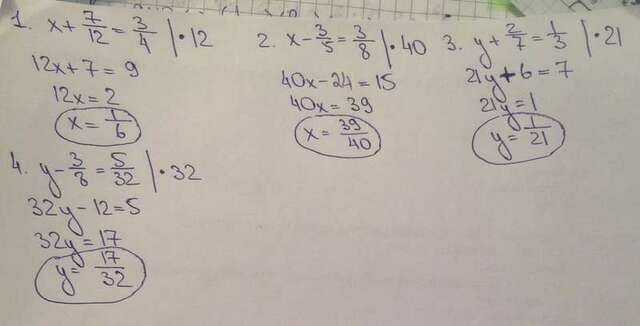 1. x + 7/12 = 3/4 | · 12
12x + 7 = 9
12x = 2
x = 1/6
2. x - 3/5 = 3/8 | · 40
40x - 24 = 15
40x = 39
x = 39/40
3. y + 2/7 = 1/3 | · 21
21y + 6 = 7
21y = 1
y = 1/21
4. y - 3/8 = 5/32 | · 32
32y - 12 = 5
32y = 17
y = 17/32